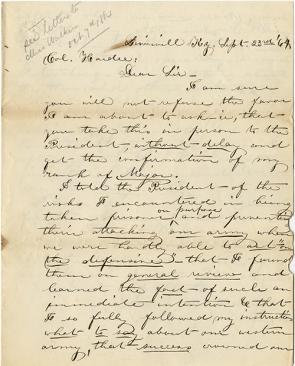 see letter to
Miss Walker
Oct. 7th, 186
Hd. Qr. Sept. 23rd '64
Col. Hardie:
Dear Sir—
I am sure
you will not refuse the favor
I am about to ask—i.e. that
you take this in person to the
President—without delay and
get the confirmation of my
rank of Major.
I told the President—of the
risks I encountered in being
taken prisoner on purpose and
their attacking our army when
we were hardly able to act "on
the defensive" & that I found
them on general review and
learned the fact—of such an
immediate intention & that
I so fully followed my instruction
what to say about our western
army, that success crowned our